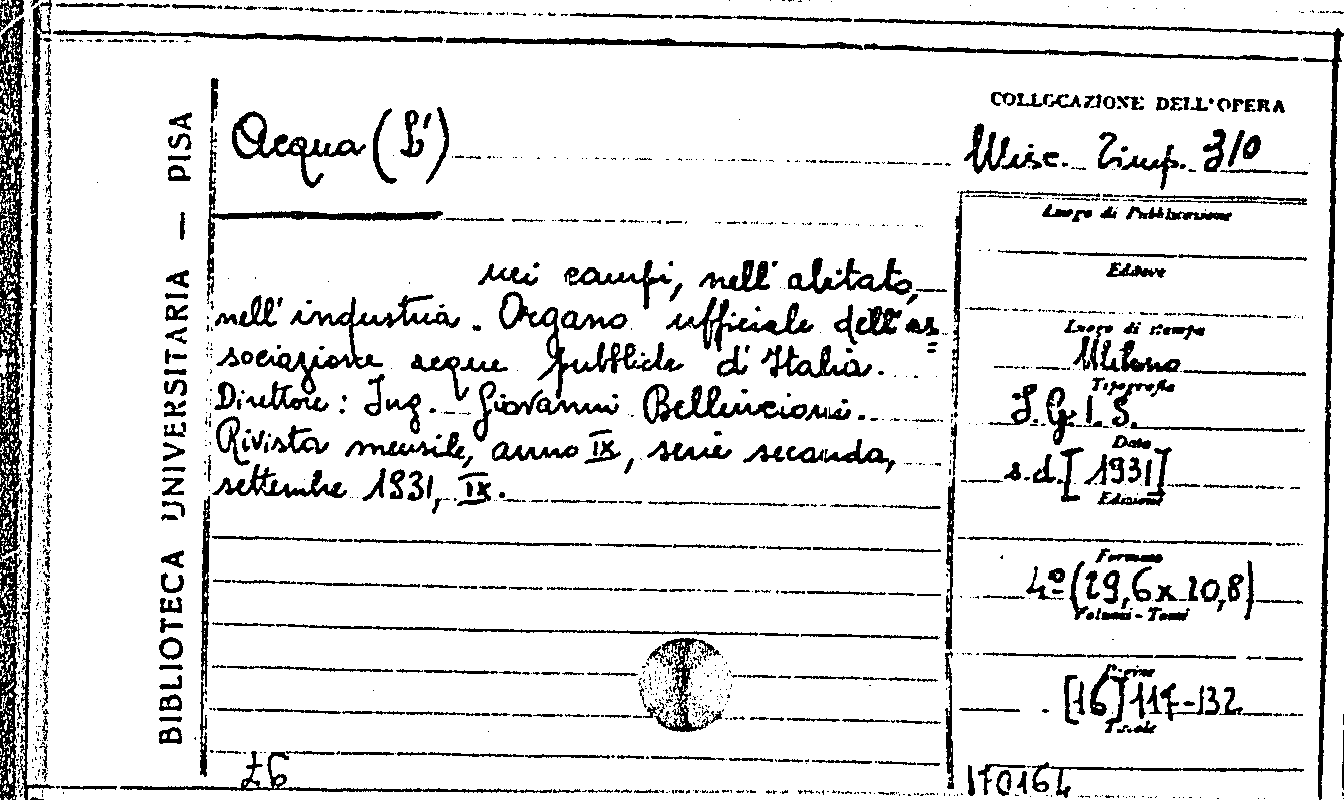 BIBLIOTECA UNIVERSITARIA — PISA
Acqua (L')
nei campi, nell'abitato,
nell'industria. Organo ufficiale dell'as=
sociazione acque pubbliche d'Italia.
Direttore: Ing. Giovanni Bellincioni.
Rivista mensile, anno IX, serie seconda,
settembre 1931, IX.
COLLOCAZIONE DELL'OPERA
Misc. Timp. 310
Luogo di Pubblicazione
Editore
Luogo di stampa
Milano
Tipografia
S.G.I.S.
Data
s.d. [1931]
Edizione
Formato
4º (29,6 x 20,8)
Volumi - Tomi
Pagine
[16] 117-132
Tavole